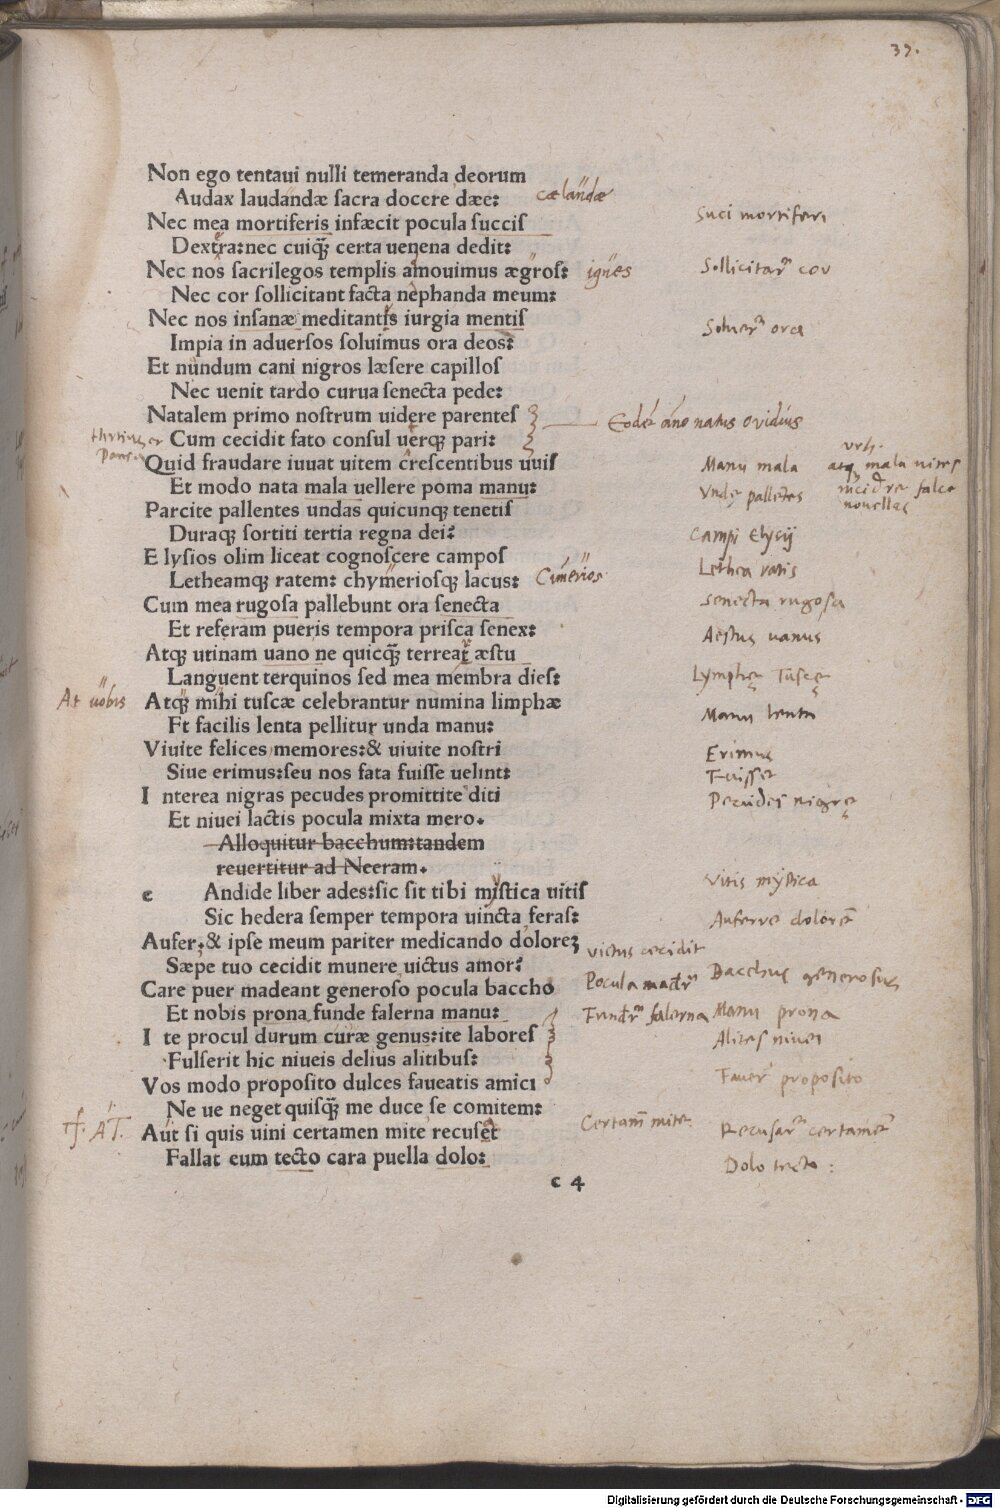 37.
Non ego tentaui nulli temeranda deorum
Audax laudandæ ſacra docere dæe: cælandæ
Nec mea mortiferis infæcit pocula ſuccis Suci mortiferi
Dextra:nec cuiq̃ certa uenena dedit:
Nec nos ſacrilegos templis amouimus ægros: ignes Sollicitar cor
Nec cor ſollicitant facta nephanda meum:
Nec nos inſanæ meditantis iurgia mentis
Impia in aduerſos ſoluimus ora deos: Soluere ora
Et nundum cani nigros læſere capillos
Nec uenit tardo curua ſenecta pede:
Natalem primo noſtrum uidere parentes Eodē āno natus ovidius
Cum cecidit fato conſul uterqꝫ pari:
Quid fraudare iuuat uitem creſcentibus uuis Manu mala
Et modo nata mala uellere poma manu:
Parcite pallentes undas quicunqꝫ tenetis Undę pallētes
Duraqꝫ ſortiti tertia regna dei: Campi Elysij
E lyſios olim liceat cognoſcere campos
Letheamqꝫ ratem: chymerioſqꝫ lacus: Cimerios Lethea ratis
Cum mea rugoſa pallebunt ora ſenecta Senecta rugosa
Et referam pueris tempora priſca ſenex:
Atqꝫ utinam uano ne quicq̃ terreat æſtu Aestus uanus
Languent terquinos ſed mea membra dies: Lymphę Tuscę
At uobis Atqꝫ mihi tuſcæ celebrantur numina limphæ
Ft facilis lenta pellitur unda manu: Manu lenta
Viuite felices memores:& uiuite noſtri Erimus
Siue erimus:ſeu nos fata fuiſſe uelint: Fuisse
I nterea nigras pecudes promittite diti Pecudes nigrę
Et niuei lactis pocula mixta mero.
Alloquitur bacchum:tandem
reuertitur ad Neeram.
c Andide liber ades:ſic ſit tibi myſtica uitis Vitis mystica
Sic hedera ſemper tempora uincta feras: Auferre dolorē
Aufer:& ipſe meum pariter medicando doloreꝫ
Sæpe tuo cecidit munere uictus amor: victus cecidit
Care puer madeant generoſo pocula baccho Bacchus generosus
Et nobis prona funde falerna manu: falerna Manu prona
I te procul durum curæ genus:ite labores Alites niuei
Fulſerit hic niueis delius alitibus:
Vos modo propoſito dulces faueatis amici propoſito
Ne ue neget quiſq̃ me duce ſe comitem:
Aut ſi quis uini certamen mite recuſet Certamē mite Recusar certamē
Fallat eum tecto cara puella dolo: Dolo tecto:
c 4
Digitalisierung gefördert durch die Deutsche Forschungsgemeinschaft - DFG